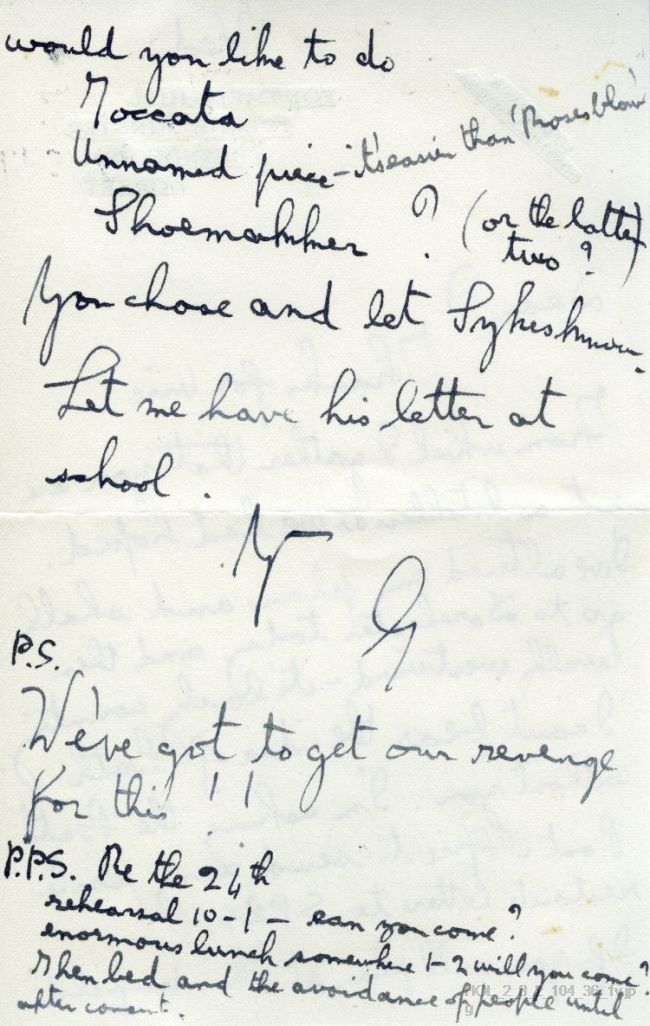 would you like to do
Toccata
Unnamed piece - it's easier than 'Roses blow'
Shoemakker ? (or the latter
two ?)
You chose and let Sykes know.
Let me have his letter at
school.
Yr
G
P.S.
We've got to get our revenge
for this ! !
P.P.S. Re the 24th
rehearsal 10-1 - can you come?
enormous lunch somewhere 1-2 will you come?
Then bed and the avoidance of people until
after concert.